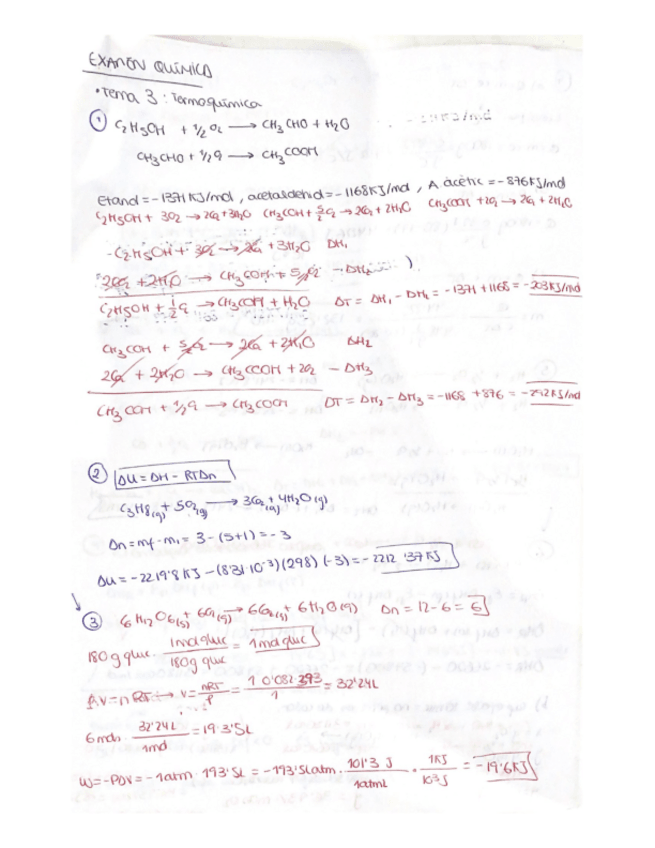 EXAMEN QUÍMICA
• Tema 3: Termoquímica
① C₂H₅OH + ½O₂ → CH₃CHO + H₂O
CH₃CHO + ½O₂ → CH₃COOH
Etanol = -1371 KJ/mol, acetaldehid = -1168KJ/mol, A acètic = -876KJ/mol
C₂H₅OH + 3O₂ → 2CO₂ + 3H₂O CH₃COH + 5/2 O₂ → 2CO₂ + 2H₂O CH₃COOH + 2O₂ → 2CO₂ + 2H₂O
C₂H₅OH + 3O₂ → 2CO₂ + 3H₂O ΔH₁
2CO₂ + 2H₂O → CH₃COH + 5/2O₂
C₂H₅OH + ½O₂ → CH₃COH + H₂O ΔT = ΔH₁ - ΔH₂ = -1371 + 1168 = -203KJ/mol
CH₃COH + 5/2O₂ → 2CO₂ + 2H₂O ΔH₂
2CO₂ + 2H₂O → CH₃COOH + 2O₂ - ΔH₃
CH₃COH + ½O₂ → CH₃COOH ΔT = ΔH₂ - ΔH₃ = -1168 + 876 = -292KJ/mol
② ΔU = ΔH - RTΔn
C₃H₈(g) + 5O₂(g) → 3CO₂(g) + 4H₂O(g)
Δn = nf - ni = 3 - (5+1) = -3
ΔU = -2219'8 KJ - (8'31·10⁻³)(298)(-3) = -2212'37KJ
③ C₆H₁₂O₆(s) + 6O₂(g) → 6CO₂(g) + 6H₂O(g) Δn = 12 - 6 = 6
180g gluc · 1mol gluc / 180g gluc = 1mol gluc
PV = nRT → V = nRT/P = 1·0'082·393/1 = 32'24L
6mols · 32'24L/1mol = 193'5L
W = -PΔV = -1atm · 193'5L = -193'5Latm · 101'3 J/1atmL · 1KJ/10³J = -19'6KJ